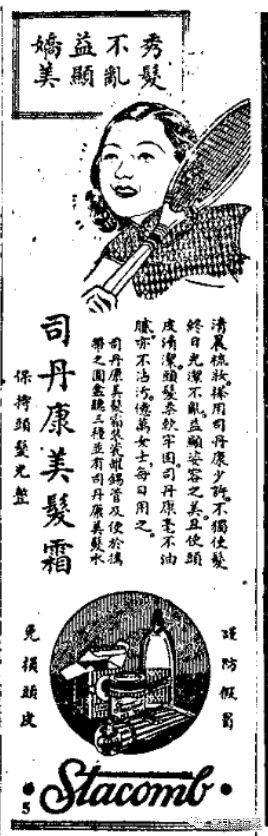 秀髮
不亂
益顯
嬌美
清晨梳妝。搽用司丹康少許。不獨使髮
終日光潔不亂。益顯姿容之美。且使頭
皮清潔。頭髮柔軟牢固。司丹康毫不油
膩。亦不沾污。億萬女士。每日用之。
司丹康美髮霜裝瓷罐錫管及便於携
帶之圓盒聽三種並有司丹康美髮水
司丹康美髮霜
保持頭髮光整
謹防假冒
免損頭皮
Stacomb
5